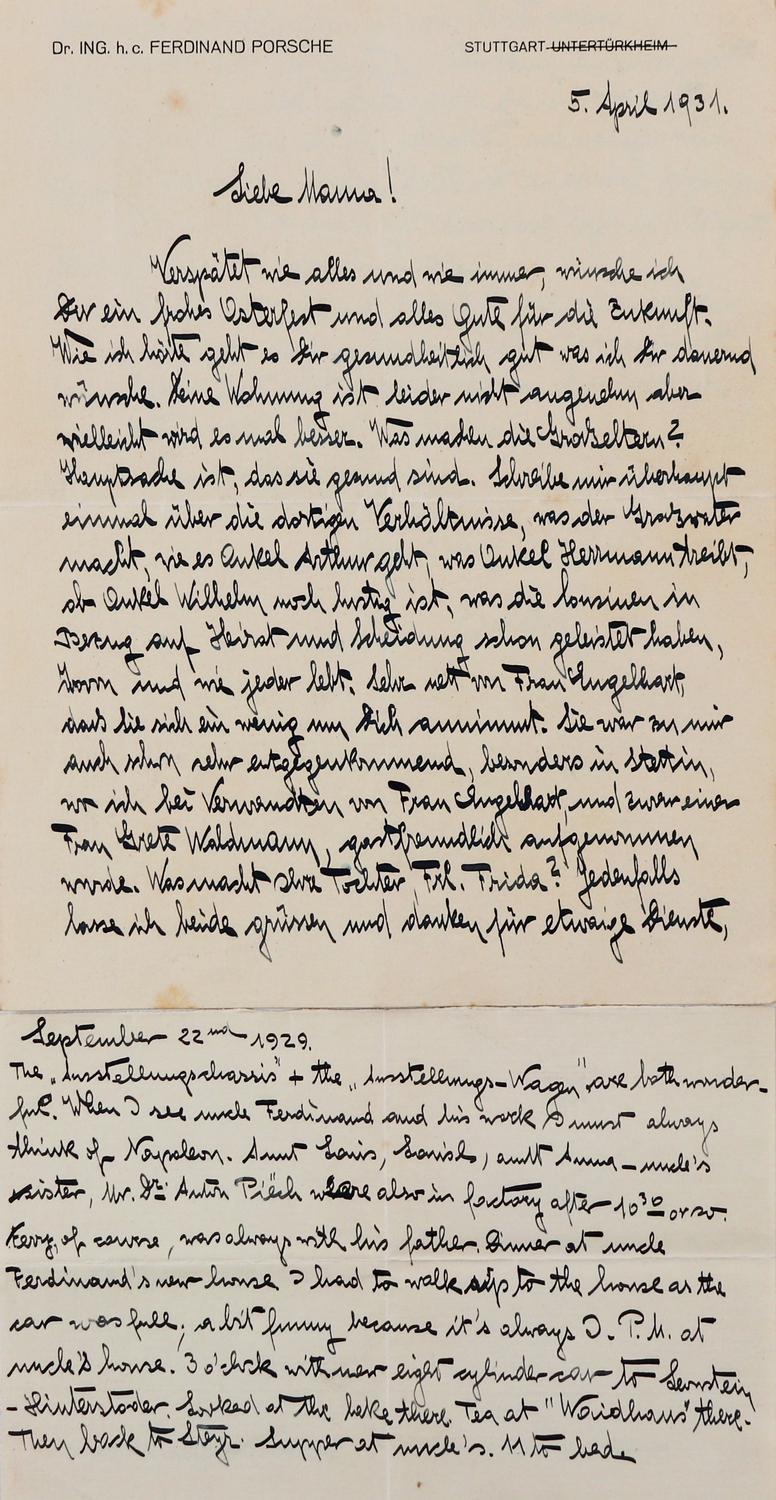 Dr. ING. h. c. FERDINAND PORSCHE
STUTTGART-UNTERTÜRKHEIM
5. April 1931.
Liebe Mama!
Verspätet wie alles und wie immer, wünsche ich
Dir ein frohes Osterfest und alles Gute für die Zukunft.
Wie ich hörte geht es Dir gesundheitlich gut was ich Dir dauernd
wünsche. Deine Wohnung ist leider nicht angenehm aber
vielleicht wird es mal besser. Was machen die Großeltern?
Hauptsache ist, das sie gesund sind. Schreibe mir überhaupt
einmal über die dortigen Verhältnisse, was der Großvater
macht, wie es Onkel Arthur geht, was Onkel Herrmann treibt,
ob Onkel Wilhelm noch lustig ist, was die Cousinen in
Bezug auf Heirat und Scheidung schon geleistet haben,
und wie jeder lebt. Sehr nett von Frau Engelhart,
dass Sie sich ein wenig um Dich annimmt. Sie war zu mir
auch schon sehr entgegenkommend, besonders in Stettin,
wo ich bei Verwandten von Frau Engelhart, und zwar einer
Frau Grete Waldmann, gastfreundlich aufgenommen
wurde. Was macht Ihre Tochter, Frl. Frida? Jedenfalls
lasse ich beide grüssen und danken für etwaige Dienste,
September 22nd 1929.
The „Ausstellungschassis" + the „Ausstellungs-Wagen" are both wonder-
ful. When I see uncle Ferdinand and his work I must always
think of Napoleon. Aunt Louis, , aunt Anna - uncle's
sister, Mr. Dr. Anton Piëch were also in factory after 10 30 or so.
Ferry, of course, was always with his father. Dinner at uncle
Ferdinand's new house I had to walk up to the house as the
car was full; a bit funny because it's always P.M. at
uncle's house. 3 o'clock with new eight cylinder car to
- Hinterstoder. Looked at the lake there. Tea at "Waidhaus" there.
Then back to Steyr. Supper at uncle's. 11 to bed.